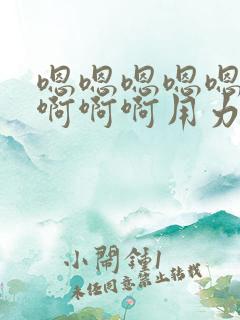 嗯嗯嗯嗯嗯
啊啊啊用力
小鬧鐘1
未经同意禁止转载